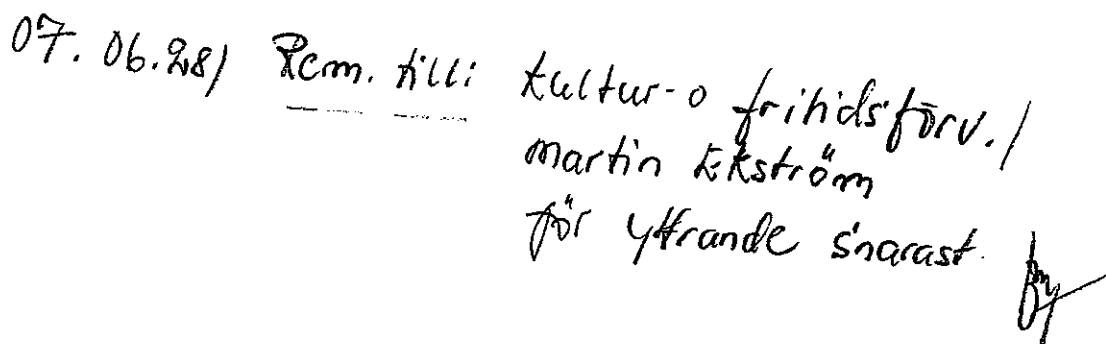 07.06.28/ Rem. till: Kultur-o fritidsförv./
Martin Ekström
för yttrande snarast.